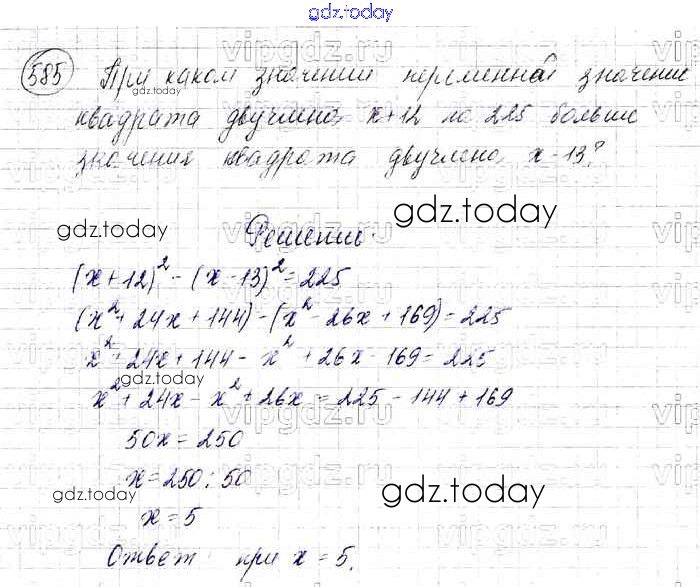 gdz.today
585 При каком значении переменной значение
gdz.today
квадрата двучлена x+12 на 225 больше
значения квадрата двучлена x-13?
gdz.today
gdz.today
Решение:
(x+12)² - (x-13)² = 225
(x² + 24x + 144) - (x² - 26x + 169) = 225
x² + 24x + 144 - x² + 26x - 169 = 225
gdz.today
x² + 24x - x² + 26x = 225 - 144 + 169
50x = 250
x = 250 : 50
gdz.today
gdz.today
x = 5
Ответ: при x = 5.
vipgdz.ru